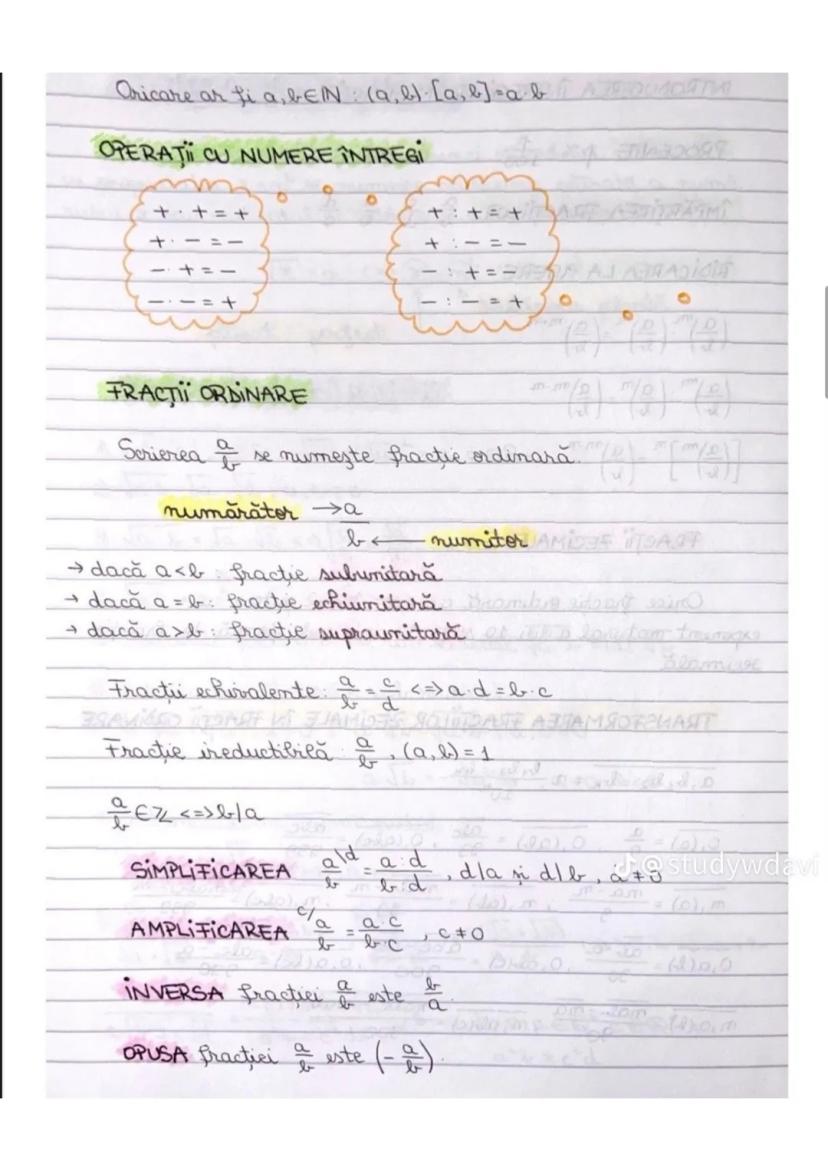 Oricare ar fi a, b ∈ ℕ : (a, b) · [a, b] = a · b
OPERAȚII CU NUMERE ÎNTREGI
+ · + = +
+ · − = −
− · + = −
− · − = +
+ : + = +
+ : − = −
− : + = −
− : − = +
FRACȚII ORDINARE
Scrierea a/b se numește fracție ordinară.
numărător → a
b ← numitor
→ dacă a < b : fracție subunitară
→ dacă a = b : fracție echiunitară
→ dacă a > b : fracție supraunitară
Fracții echivalente: a/b = c/d <=> a · d = b · c
Fracție ireductibilă : a/b , (a, b) = 1
a/b ∈ ℤ <=> b | a
SIMPLIFICAREA a/b \d = a : d / b : d , d | a și d | b , d ≠ 0
@studywdavi
AMPLIFICAREA c/ a/b = a · c / b · c , c ≠ 0
INVERSA fracției a/b este b/a
OPUSA fracției a/b este (− a/b).